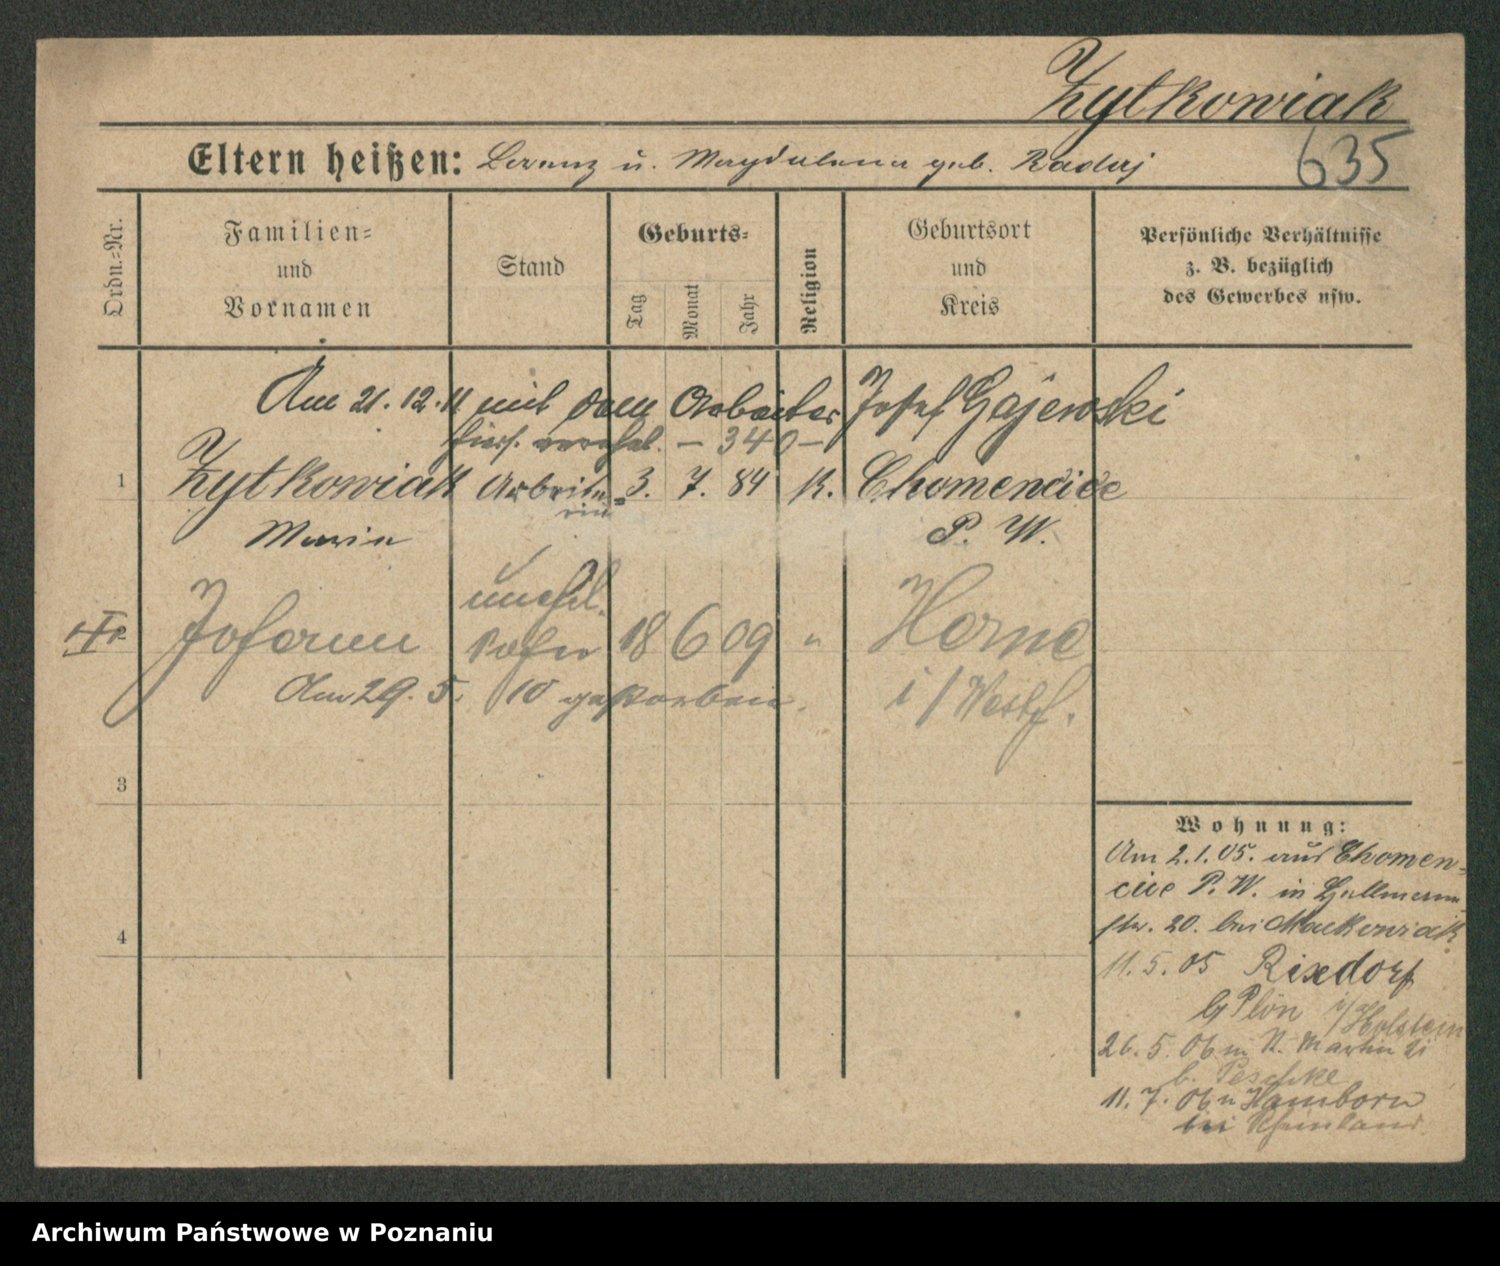 Zytkowiak
Eltern heißen: Lorenz u. Magdalena geb. Radaj
635
Ordn.-Nr.
Familien-
und
Vornamen
Stand
Geburts-
Tag
Monat
Jahr
Religion
Geburtsort
und
Kreis
Persönliche Verhältnisse
z. B. bezüglich
des Gewerbes usw.
Am 21.12.11 mit dem Arbeiter Josef Gajewski
hier verehel. – 340 –
1 Zytkowiak Arbeite- 3. 7. 84 K. Chomencice
rin
Marie P. W.
unehel.
Johann Sohn 18 6 09 " Herne
Am 29. 5. 10 gestorben. i/Westf.
3
4
Wohnung:
Am 2.1.05. aus Chomen-
cice P. W. in Hallmann
str. 20. bei Mackowiak
11. 5. 05 Rixdorf
b/ Plön i/Holstein
26. 5. 06 n St. Martin 21
b. Peschke
11. 7. 06 n Hamborn
bei Rheinland